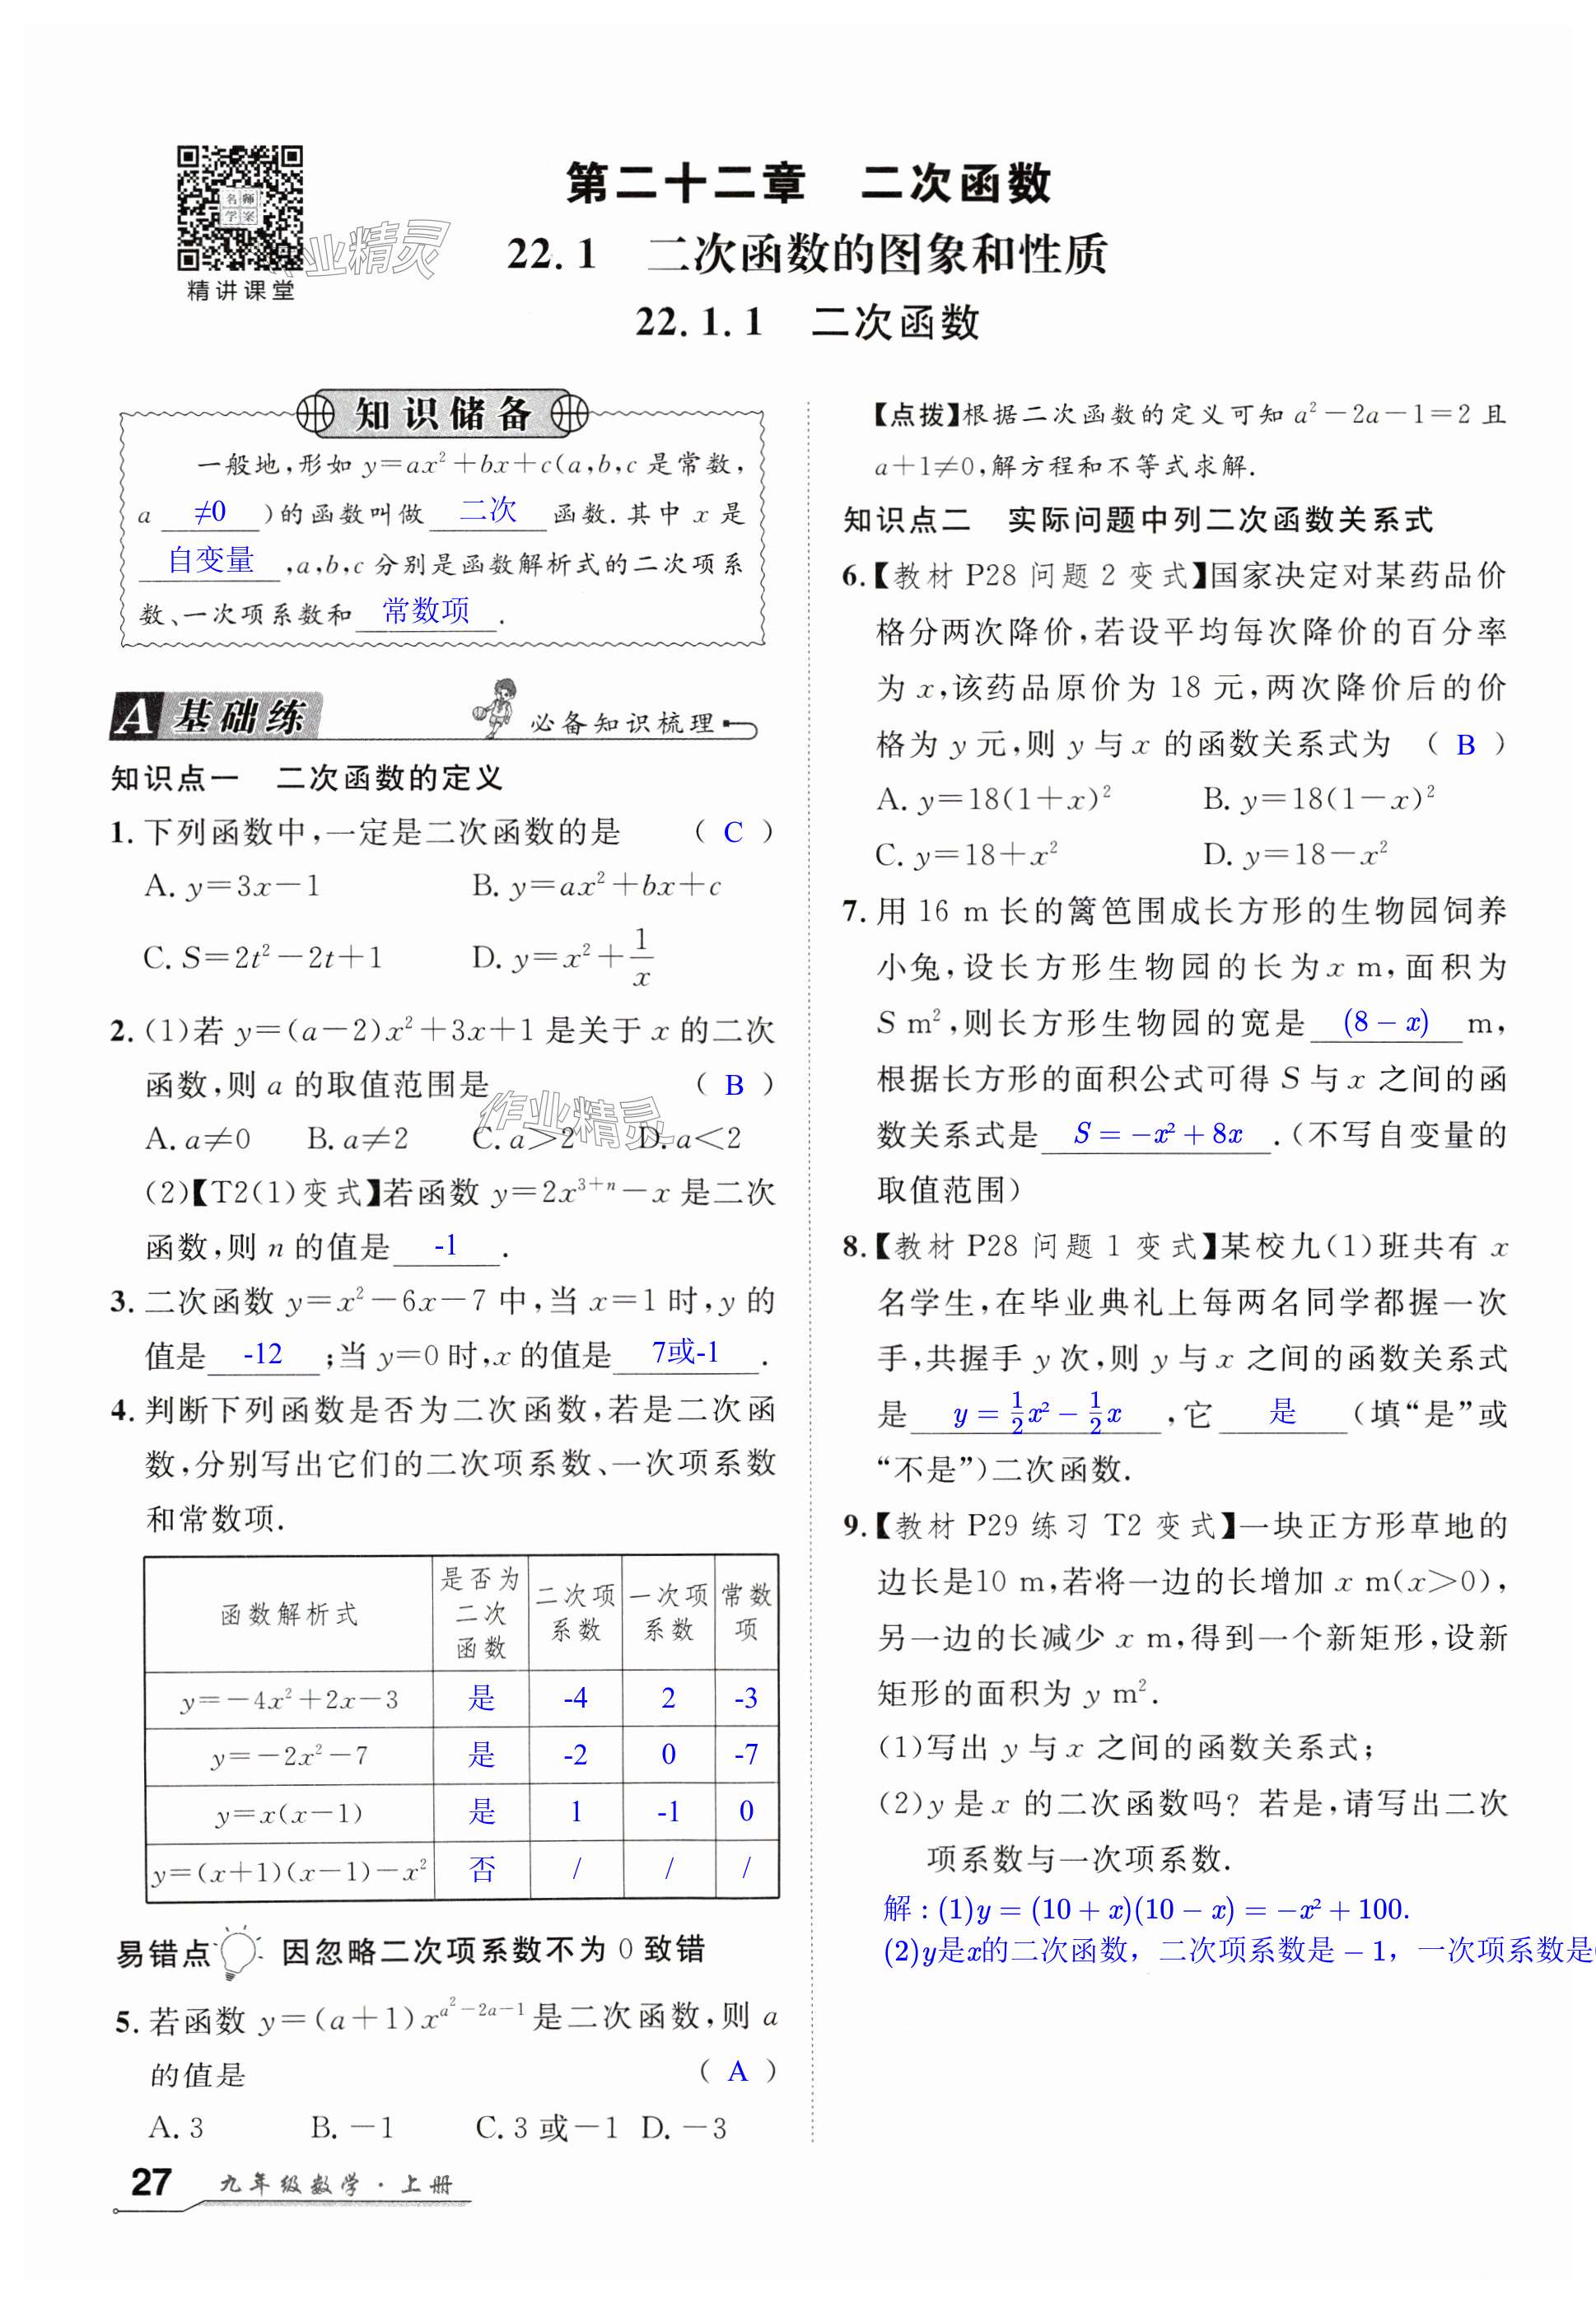 第二十二章 二次函数
22.1 二次函数的图象和性质
22.1.1 二次函数
名师学案
精讲课堂
作业精灵
知识储备
一般地,形如 y=ax²+bx+c(a,b,c 是常数,
a ≠0 )的函数叫做 二次 函数.其中 x 是
自变量 ,a,b,c 分别是函数解析式的二次项系
数、一次项系数和 常数项 .
A 基础练 必备知识梳理
知识点一 二次函数的定义
1. 下列函数中,一定是二次函数的是 ( C )
A. y=3x-1 B. y=ax²+bx+c
C. S=2t²-2t+1 D. y=x²+1/x
2. (1)若 y=(a-2)x²+3x+1 是关于 x 的二次
函数,则 a 的取值范围是 ( B )
作业精灵
A. a≠0 B. a≠2 C. a>2 D. a<2
(2)【T2(1)变式】若函数 y=2x³⁺ⁿ-x 是二次
函数,则 n 的值是 -1 .
3. 二次函数 y=x²-6x-7 中,当 x=1 时,y 的
值是 -12 ;当 y=0 时,x 的值是 7或-1 .
4. 判断下列函数是否为二次函数,若是二次函
数,分别写出它们的二次项系数、一次项系数
和常数项.
函数解析式 是否为二次函数 二次项系数 一次项系数 常数项
y=-4x²+2x-3 是 -4 2 -3
y=-2x²-7 是 -2 0 -7
y=x(x-1) 是 1 -1 0
y=(x+1)(x-1)-x² 否 / / /
易错点 因忽略二次项系数不为 0 致错
5. 若函数 y=(a+1)x^(a²-2a-1) 是二次函数,则 a
的值是 ( A )
A. 3 B. -1 C. 3 或-1 D. -3
27 九年级数学·上册
【点拨】根据二次函数的定义可知 a²-2a-1=2 且
a+1≠0,解方程和不等式求解.
知识点二 实际问题中列二次函数关系式
6.【教材 P28 问题 2 变式】国家决定对某药品价
格分两次降价,若设平均每次降价的百分率
为 x,该药品原价为 18 元,两次降价后的价
格为 y 元,则 y 与 x 的函数关系式为 ( B )
A. y=18(1+x)² B. y=18(1-x)²
C. y=18+x² D. y=18-x²
7. 用 16 m 长的篱笆围成长方形的生物园饲养
小兔,设长方形生物园的长为 x m,面积为
S m²,则长方形生物园的宽是 (8-x) m,
根据长方形的面积公式可得 S 与 x 之间的函
数关系式是 S=-x²+8x .(不写自变量的
取值范围)
8.【教材 P28 问题 1 变式】某校九(1)班共有 x
名学生,在毕业典礼上每两名同学都握一次
手,共握手 y 次,则 y 与 x 之间的函数关系式
是 y=1/2x²-1/2x ,它 是 (填“是”或
“不是”)二次函数.
9.【教材 P29 练习 T2 变式】一块正方形草地的
边长是10 m,若将一边的长增加 x m(x>0),
另一边的长减少 x m,得到一个新矩形,设新
矩形的面积为 y m².
(1)写出 y 与 x 之间的函数关系式;
(2)y 是 x 的二次函数吗? 若是,请写出二次
项系数与一次项系数.
解:(1)y=(10+x)(10-x)=-x²+100.
(2)y是x的二次函数，二次项系数是-1，一次项系数是